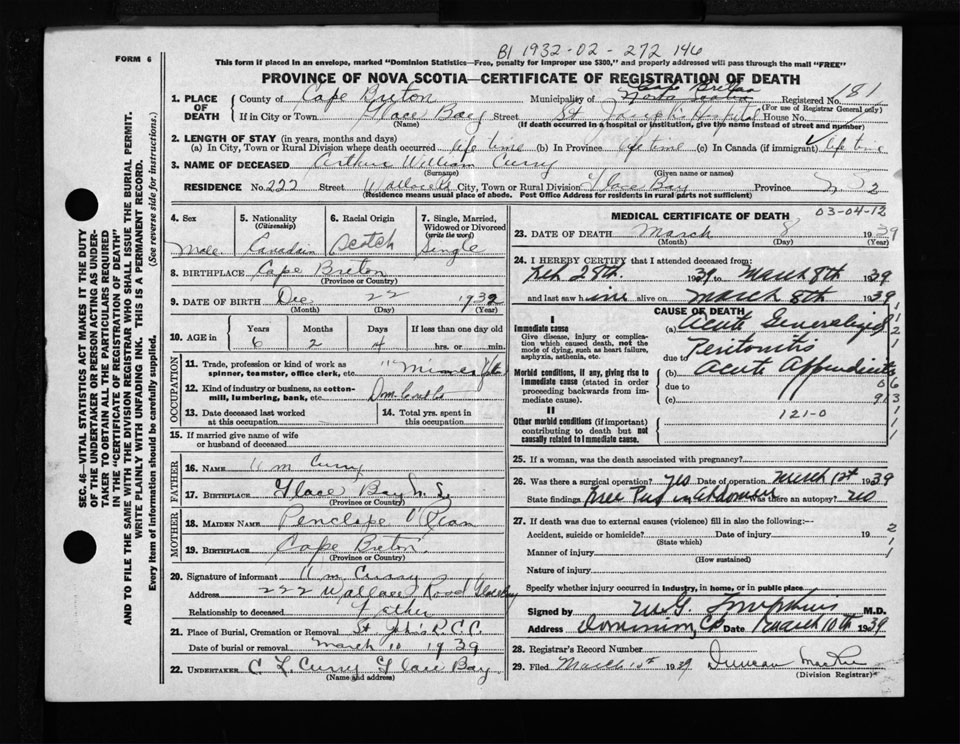 B1 1932-02-272 146
FORM 6
This form if placed in an envelope, marked "Dominion Statistics—Free, penalty for improper use $300," and properly addressed will pass through the mail "FREE"
PROVINCE OF NOVA SCOTIA—CERTIFICATE OF REGISTRATION OF DEATH
1. PLACE OF DEATH
County of Cape Breton Municipality of Cape Breton Nova Scotia Registered No. 181
(For use of Registrar General only)
If in City or Town Glace Bay Street St. Joseph's Hospital House No.
(Name) (If death occurred in a hospital or institution, give the name instead of street and number)
2. LENGTH OF STAY (in years, months and days)
(a) In City, Town or Rural Division where death occurred life time (b) In Province life time (c) In Canada (if immigrant) life time
3. NAME OF DECEASED Arthur William Curry
(Surname) (Given name or names)
RESIDENCE No. 222 Street Wallace Rd City, Town or Rural Division Glace Bay Province N S
(Residence means usual place of abode. Post Office Address for residents in rural parts not sufficient)
4. Sex
Male
5. Nationality (Citizenship)
Canadain
6. Racial Origin
Scotch
7. Single, Married, Widowed or Divorced (write the word)
Single
8. BIRTHPLACE Cape Breton
(Province or Country)
9. DATE OF BIRTH Dec 22 1932
(Month) (Day) (Year)
10. AGE in Years Months Days If less than one day old
6 2 4 hrs. or min.
OCCUPATION
11. Trade, profession or kind of work as spinner, teamster, office clerk, etc. "Miner
12. Kind of industry or business, as cotton-mill, lumbering, bank, etc. Dom.
13. Date deceased last worked at this occupation
14. Total yrs. spent in this occupation
15. If married give name of wife or husband of deceased
FATHER
16. NAME Wm Curry
17. BIRTHPLACE Glace Bay N. S.
(Province or Country)
MOTHER
18. MAIDEN NAME Penelope
19. BIRTHPLACE Cape Breton
(Province or Country)
20. Signature of informant Wm Curry
Address 222 Wallace Road Glace Bay
Relationship to deceased Father
21. Place of Burial, Cremation or Removal St John's R.C.C.
Date of burial or removal March 10 1939
22. UNDERTAKER C L Curry Glace Bay
(Name and address)
MEDICAL CERTIFICATE OF DEATH 03-04-12
23. DATE OF DEATH March 8 1939
(Month) (Day) (Year)
24. I HEREBY CERTIFY that I attended deceased from:
Feb 28th. 1939 to March 8th 1939
and last saw him alive on March 8th 1939
CAUSE OF DEATH
I
Immediate cause
Give disease, injury or complication which caused death, not the mode of dying, such as heart failure, asphyxia, asthenia, etc.
(a) Acute Generalized
due to Peritonitis
Morbid conditions, if any, giving rise to immediate cause (stated in order proceeding backwards from immediate cause).
(b) Acute Appendicitis
due to
(c)
121-0
II
Other morbid conditions (if important) contributing to death but not causally related to immediate cause.
25. If a woman, was the death associated with pregnancy?
26. Was there a surgical operation? Yes Date of operation March 1st 1939
State findings Free Pus in abdomen Was there an autopsy? No
27. If death was due to external causes (violence) fill in also the following:—
Accident, suicide or homicide? Date of injury 19
(State which)
Manner of injury
(How sustained)
Nature of injury
Specify whether injury occurred in industry, in home, or in public place
Signed by M.G. Tompkins M.D.
Address Dominion, C.B. Date March 10th 1939
28. Registrar's Record Number
29. Filed March 10th 1939 Duncan
(Division Registrar)
SEC. 46—VITAL STATISTICS ACT MAKES IT THE DUTY OF THE UNDERTAKER OR PERSON ACTING AS UNDERTAKER TO OBTAIN ALL THE PARTICULARS REQUIRED IN THE "CERTIFICATE OF REGISTRATION OF DEATH" AND TO FILE THE SAME WITH THE DIVISION REGISTRAR WHO SHALL ISSUE THE BURIAL PERMIT.
WRITE PLAINLY WITH UNFADING INK. THIS IS A PERMANENT RECORD.
Every item of information should be carefully supplied. (See reverse side for instructions.)